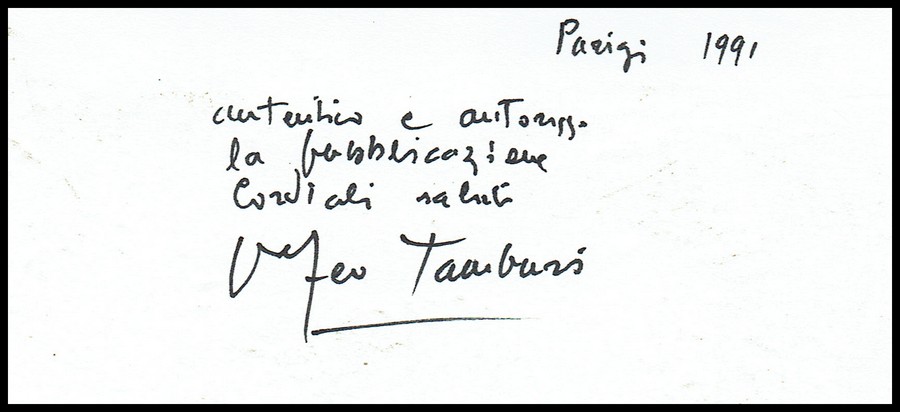 Parigi 1991
autentico e autorizzo
la pubblicazione
Cordiali saluti
Orfeo Tamburi